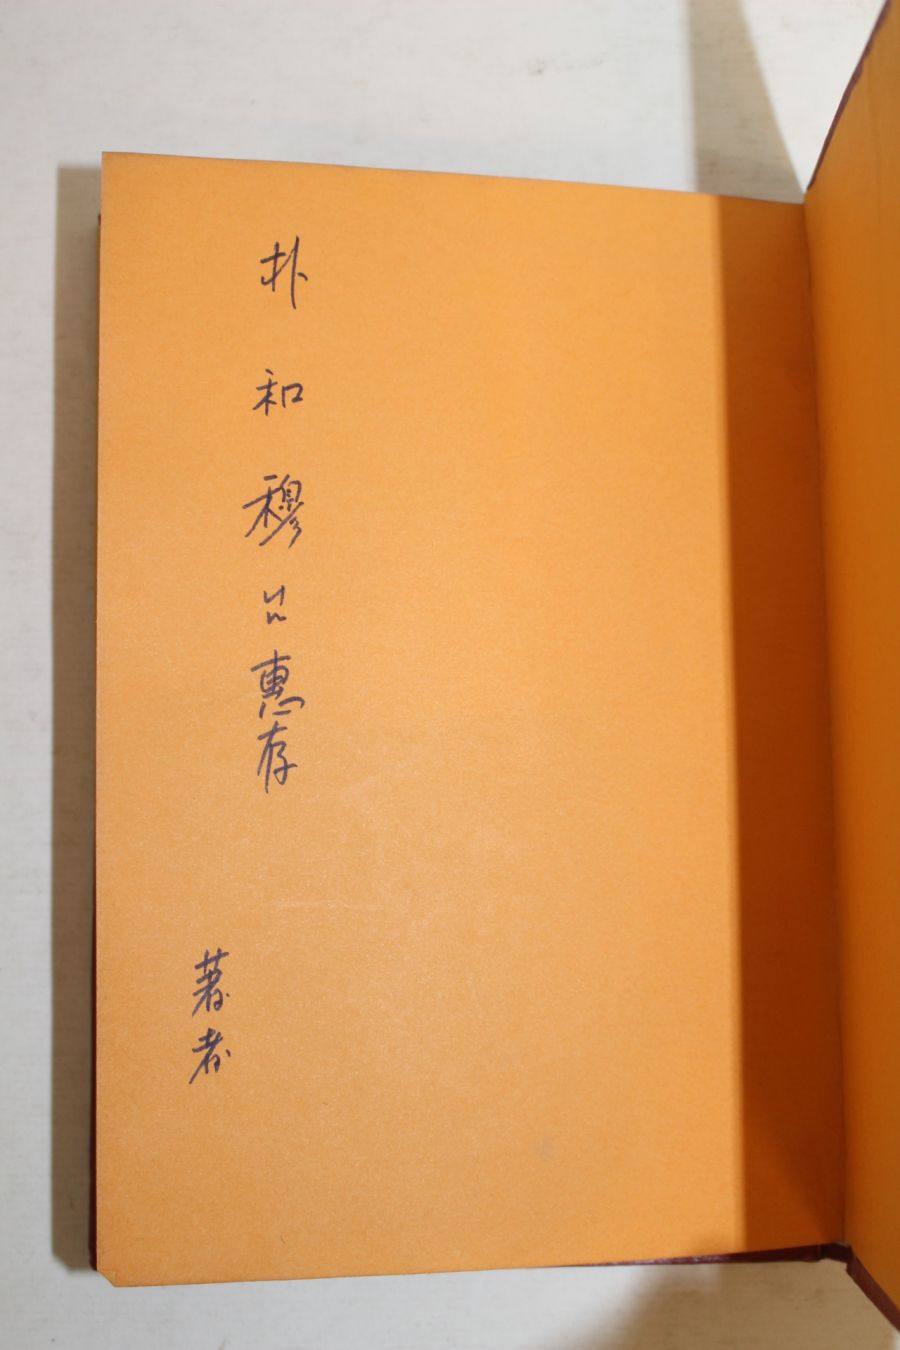 朴和穆 兄 惠存
著者